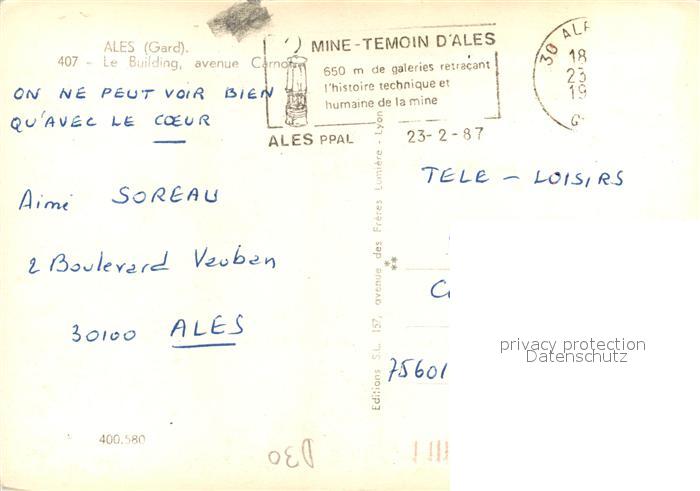 ALES (Gard).
407 - Le Building, avenue Carnot
ON NE PEUT VOIR BIEN
QU'AVEC LE CŒUR
Aimé SOREAU
2 Boulevard Vauban
30100 ALES
400.580
MINE-TEMOIN D'ALES
650 m de galeries retraçant
l'histoire technique et
humaine de la mine
ALES PPAL 23-2-87
30 ALE
18
23
19
G
Editions S.L. 157, avenue des Frères Lumière - Lyon
TELE - LOISIRS
75601
privacy protection
Datenschutz
D30